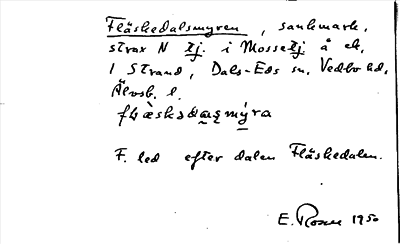 Fläskedalsmyren, sankmark,
strax N tj. i Mossetj å ek.
1 Strand, Dals-Eds sn, Vedbo hd,
Älvsb. l.
F. led efter dalen Fläskedalen.
E. Rosell 1950